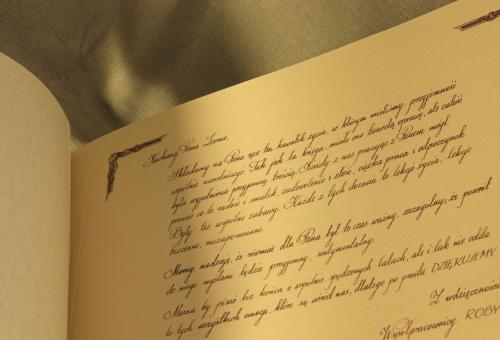 Kochany Panie Leonie,
Składamy na Pana ręce ten kawałek życia, w którym mieliśmy przyjemność
wspólnie uczestniczyć. Tak jak ta księga, miało ono twardą oprawę, ale całość
była wypełniona przyjemną treścią. Każdy z nas pracując z Panem mógł
poznać co to radość i smutek, zadowolenie i złość, ciężka praca i odpoczynek.
Były też wspólne zabawy. Każde z tych doznań to lekcje życia, lekcje
bezcenne, niezapomniane.
Mamy nadzieję, że również dla Pana był to czas ważny, szczególny, że powrót
do niego myślami będzie przyjemny, sentymentalny.
Można by pisać bez końca o wspólnie spędzonych latach, ale i tak nie odda
to tych wszystkich emocji, które są wśród nas, dlatego po prostu DZIĘKUJEMY
Z wdzięcznością
Współpracownicy ROBY